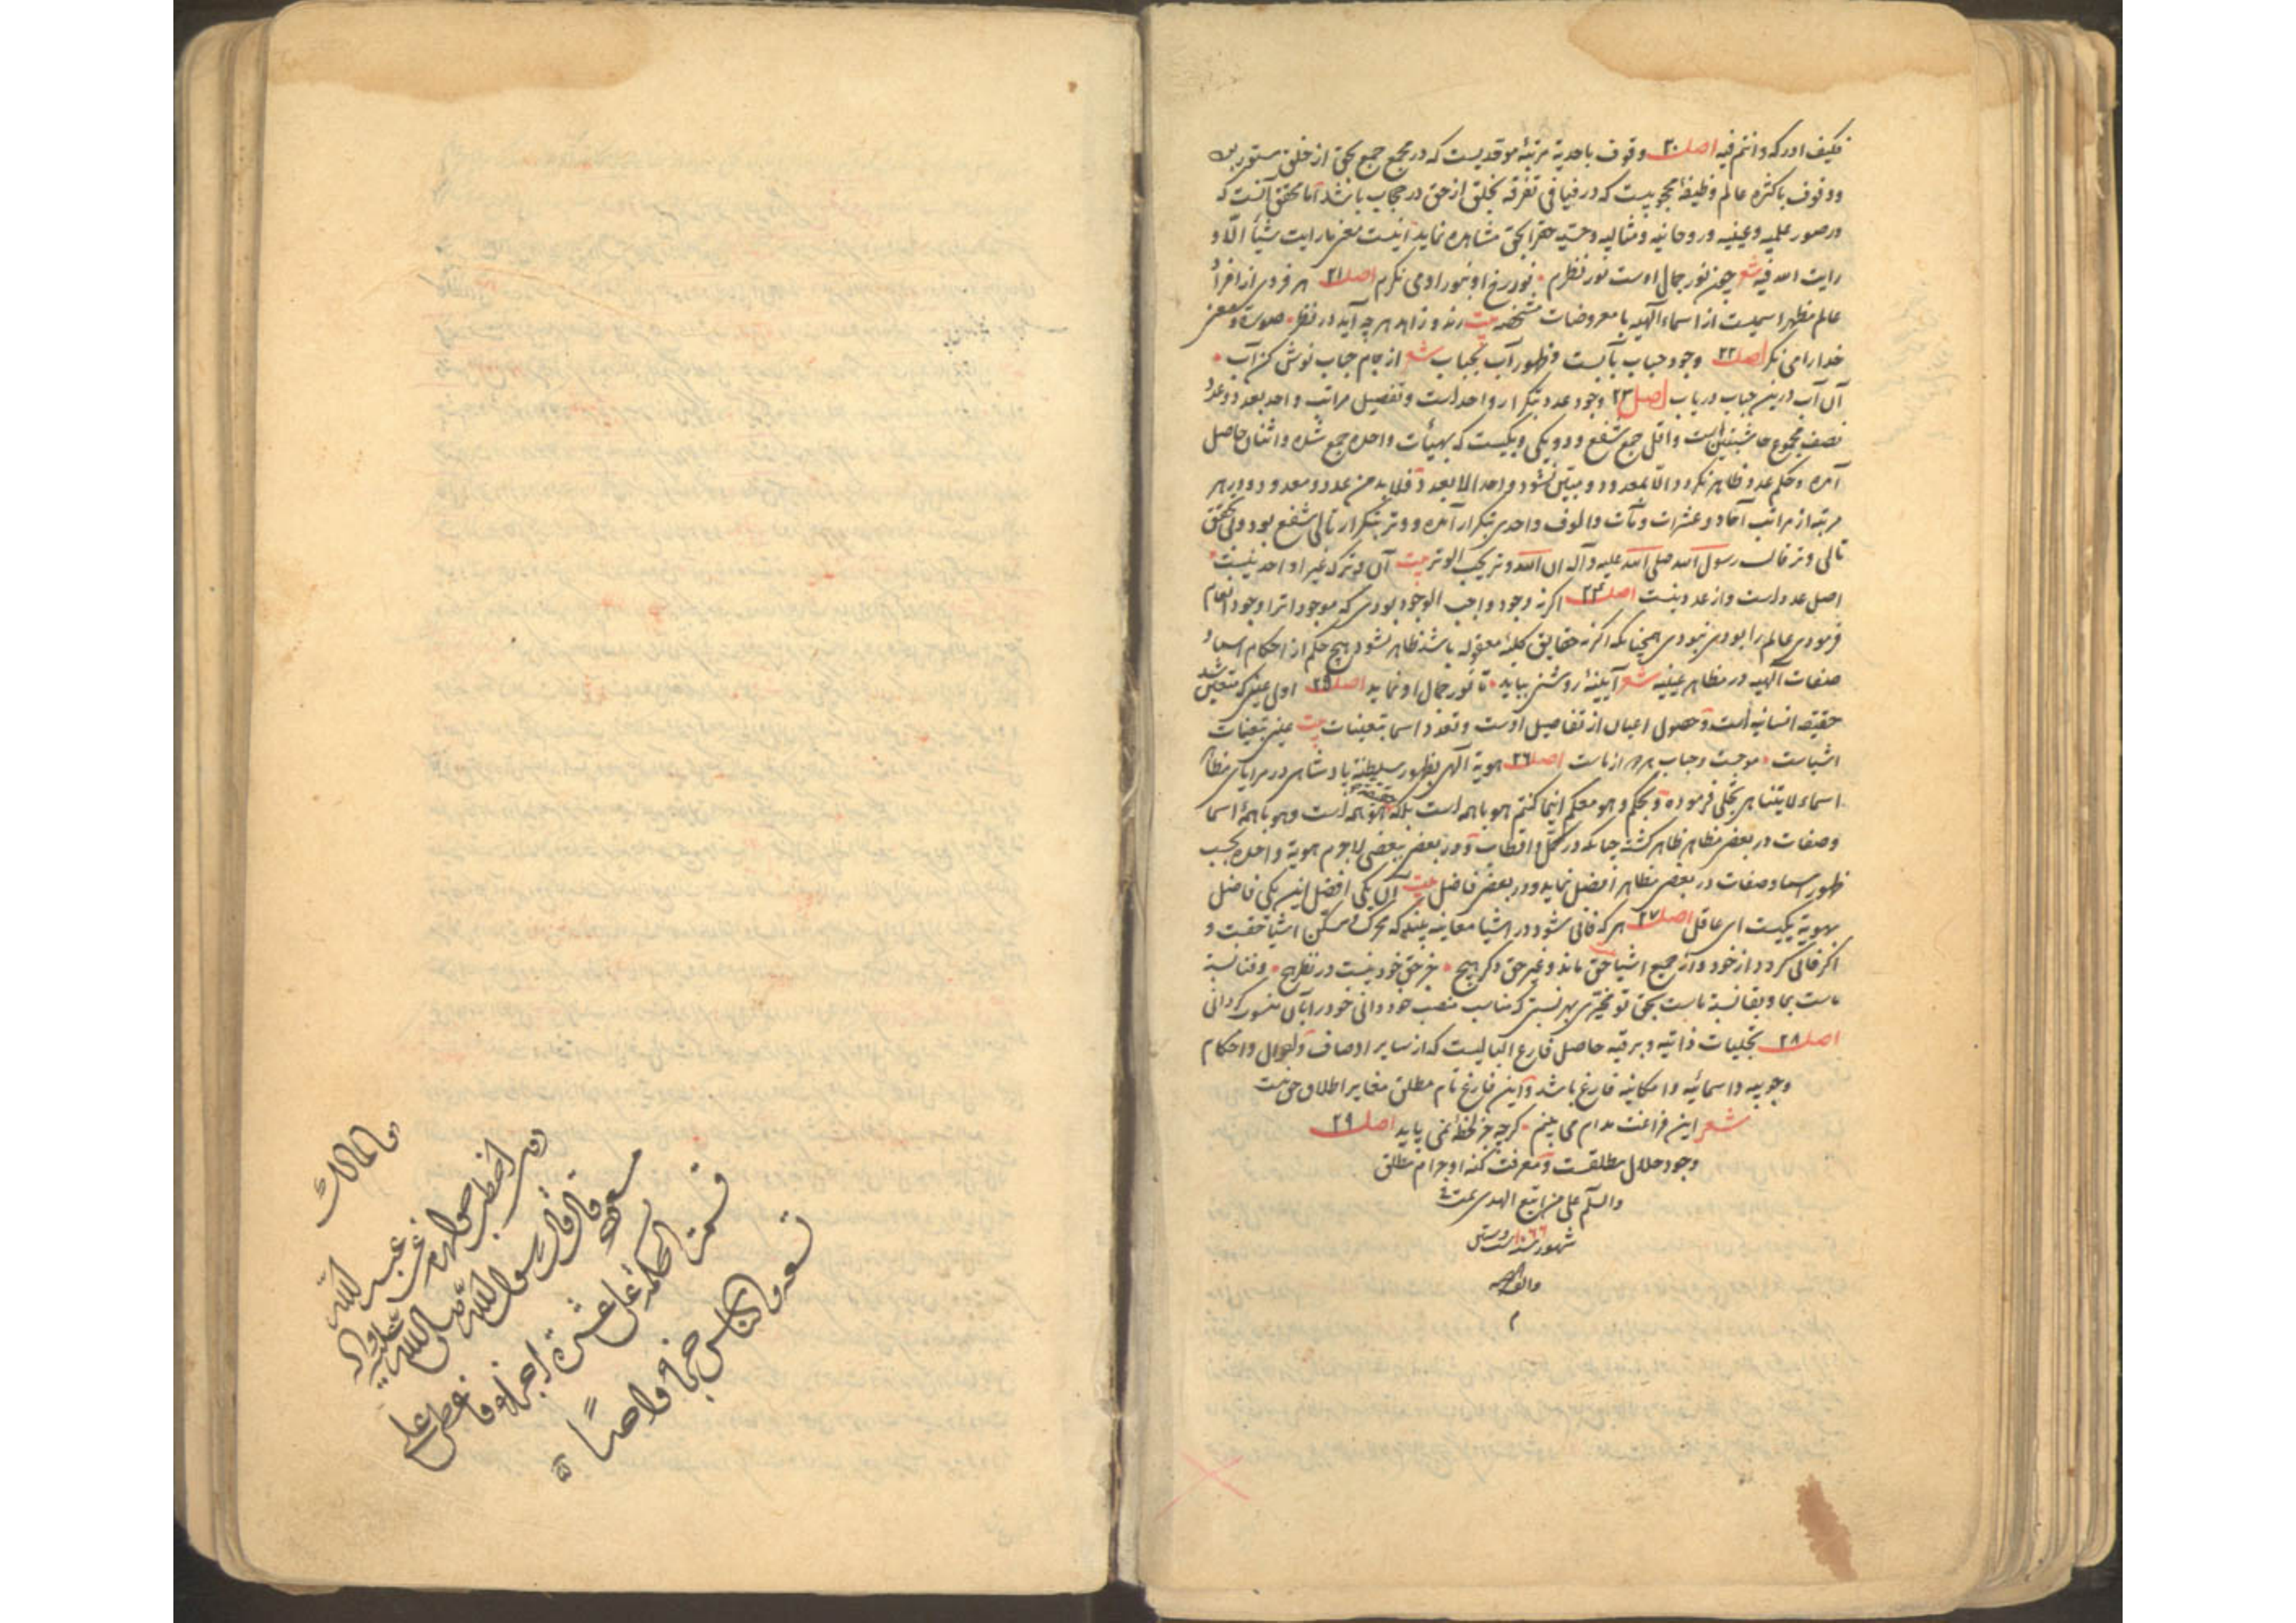 فکیف ادرکه وانتم فیه اصل ۲۰ وقوف باحدیة مرتبهٔ موحدیست که در مجمع جمع بحق از خلق مستور
ووقوف باکثرة عالم وظیفهٔ محجوبیست که در فیافی تفرقه بخلق از حق در حجاب باشد اما محقق آنست که
در صور علمیه وعینیه وروحانیه ومثالیه وحسیه حق را بحق مشاهده نماید اینست معنی ما رایت شیئا الا و
رایت الله فیه شعر چون نور جمال اوست نور نظرم • نور رخ او بنور او می نگرم اصل ۲۱ هر فردی از افراد
عالم مظهر اسمیست از اسماء الهیه با معروضات مشخصه بیت رند و زاهد هر چه آید در نظر • صورت و معنی
خدا را می نگر اصل ۲۲ وجود حباب بآبست وظهور آب بحباب شعر از جام حباب نوش کن آب •
آن آب درین حباب دریاب اصل ۲۳ وجود عدد بتکرار واحد است وتفصیل مراتب واحد بعدد وعدد
نصف مجموع حاشیتین است واقل جمع شفع ودو یکی ویکیست که بهیأت واحده جمع شده واثنان حاصل
آمده وحکم عدد ظاهر نگردد الا بمعدود ومبین نشود واحد الا بعدد فلابد من عدد ومعدود ودر هر
مرتبه از مراتب آحاد وعشرات ومآت والوف واحدی بتکرار آمده ووتر بتکرار تالی شفع بود ولی تحقق
تالی وتر قال رسول الله صلی الله علیه وآله ان الله وتر یحب الوتر بیت آن وتر که غیر او احد نیست •
اصل عدد است واز عدد نیست اصل ۲۴ اگر نه وجود واجب الوجود بودی که موجودات را وجود انعام
فرمودی عالم را بودی نبودی همچنانکه اگر نه حقایق کلیهٔ معقوله باشد ظاهر نشود هیچ حکم از احکام اسماء و
صفات الهیه در مظاهر عینیه شعر آیینهٔ روشنی بباید • تا نور جمال او نماید اصل ۲۵ اول عینی که متعین شد
حقیقة انسانیه است وحصول اعیان از تفاصیل اوست وتعدد اسما بتعینات بیت عین تعینات
اشیاست • موجست وحباب هر دو از ماست اصل ۲۶ هویة الهی بظهور سلطنة پادشاهی در مرایای مظاهر
اسماء لایتناهی تجلی فرموده وبحکم وهو معکم اینما کنتم هو با همه است بلکه هو همه است وهو با همهٔ اسما
وصفات در بعضی مظاهر ظاهر گشته چنانکه در کمل واقطاب ودر بعضی ببعضی لاجرم هویة واحده بحسب
ظهور اسما وصفات در بعضی مظاهر افضل نماید ودر بعضی فاضل بیت آن یکی افضل این یکی فاضل
بهویة یکیست ای عاقل اصل ۲۷ هر که فانی شود در اشیا معاینه بیند که محرک ومسکن اشیا حقست و
اگر فانی گردد از خود واز جمیع اشیا حق ماند وغیر حق دگر هیچ • جز حق خود نیست در نظر هیچ • وفنا نسبة
ماست بما وبقا نسبة ماست بحق تو مخیری بهر نسبتی که مناسب منصب خود دانی خود را بآن منسوب گردانی
اصل ۲۸ تجلیات ذاتیه وبرقیه حاصل فارغ البالیست که از سایر اوصاف واحوال واحکام
وجوبیه واسمائیه وامکانیه فارغ باشد واین فارغ تام مطلق مغایر اطلاق حق نیست
شعر این فراغت مدام می بینم • گرچه جز لحظهٔ نمی پاید اصل ۲۹
وجود حلال مطلقست ومعرفت کنه او حرام مطلق
والسلام علی من اتبع الهدی تمت
شهور سنه ست وستین
والف
م
قال
اخطب خوارزم عن عبد الله
مسعود قال قال رسول الله صلی الله علیه وآله
قسمت الحکمة علی عشرة اجزاء فاعطی علی
تسعة والناس جزءا واحدا